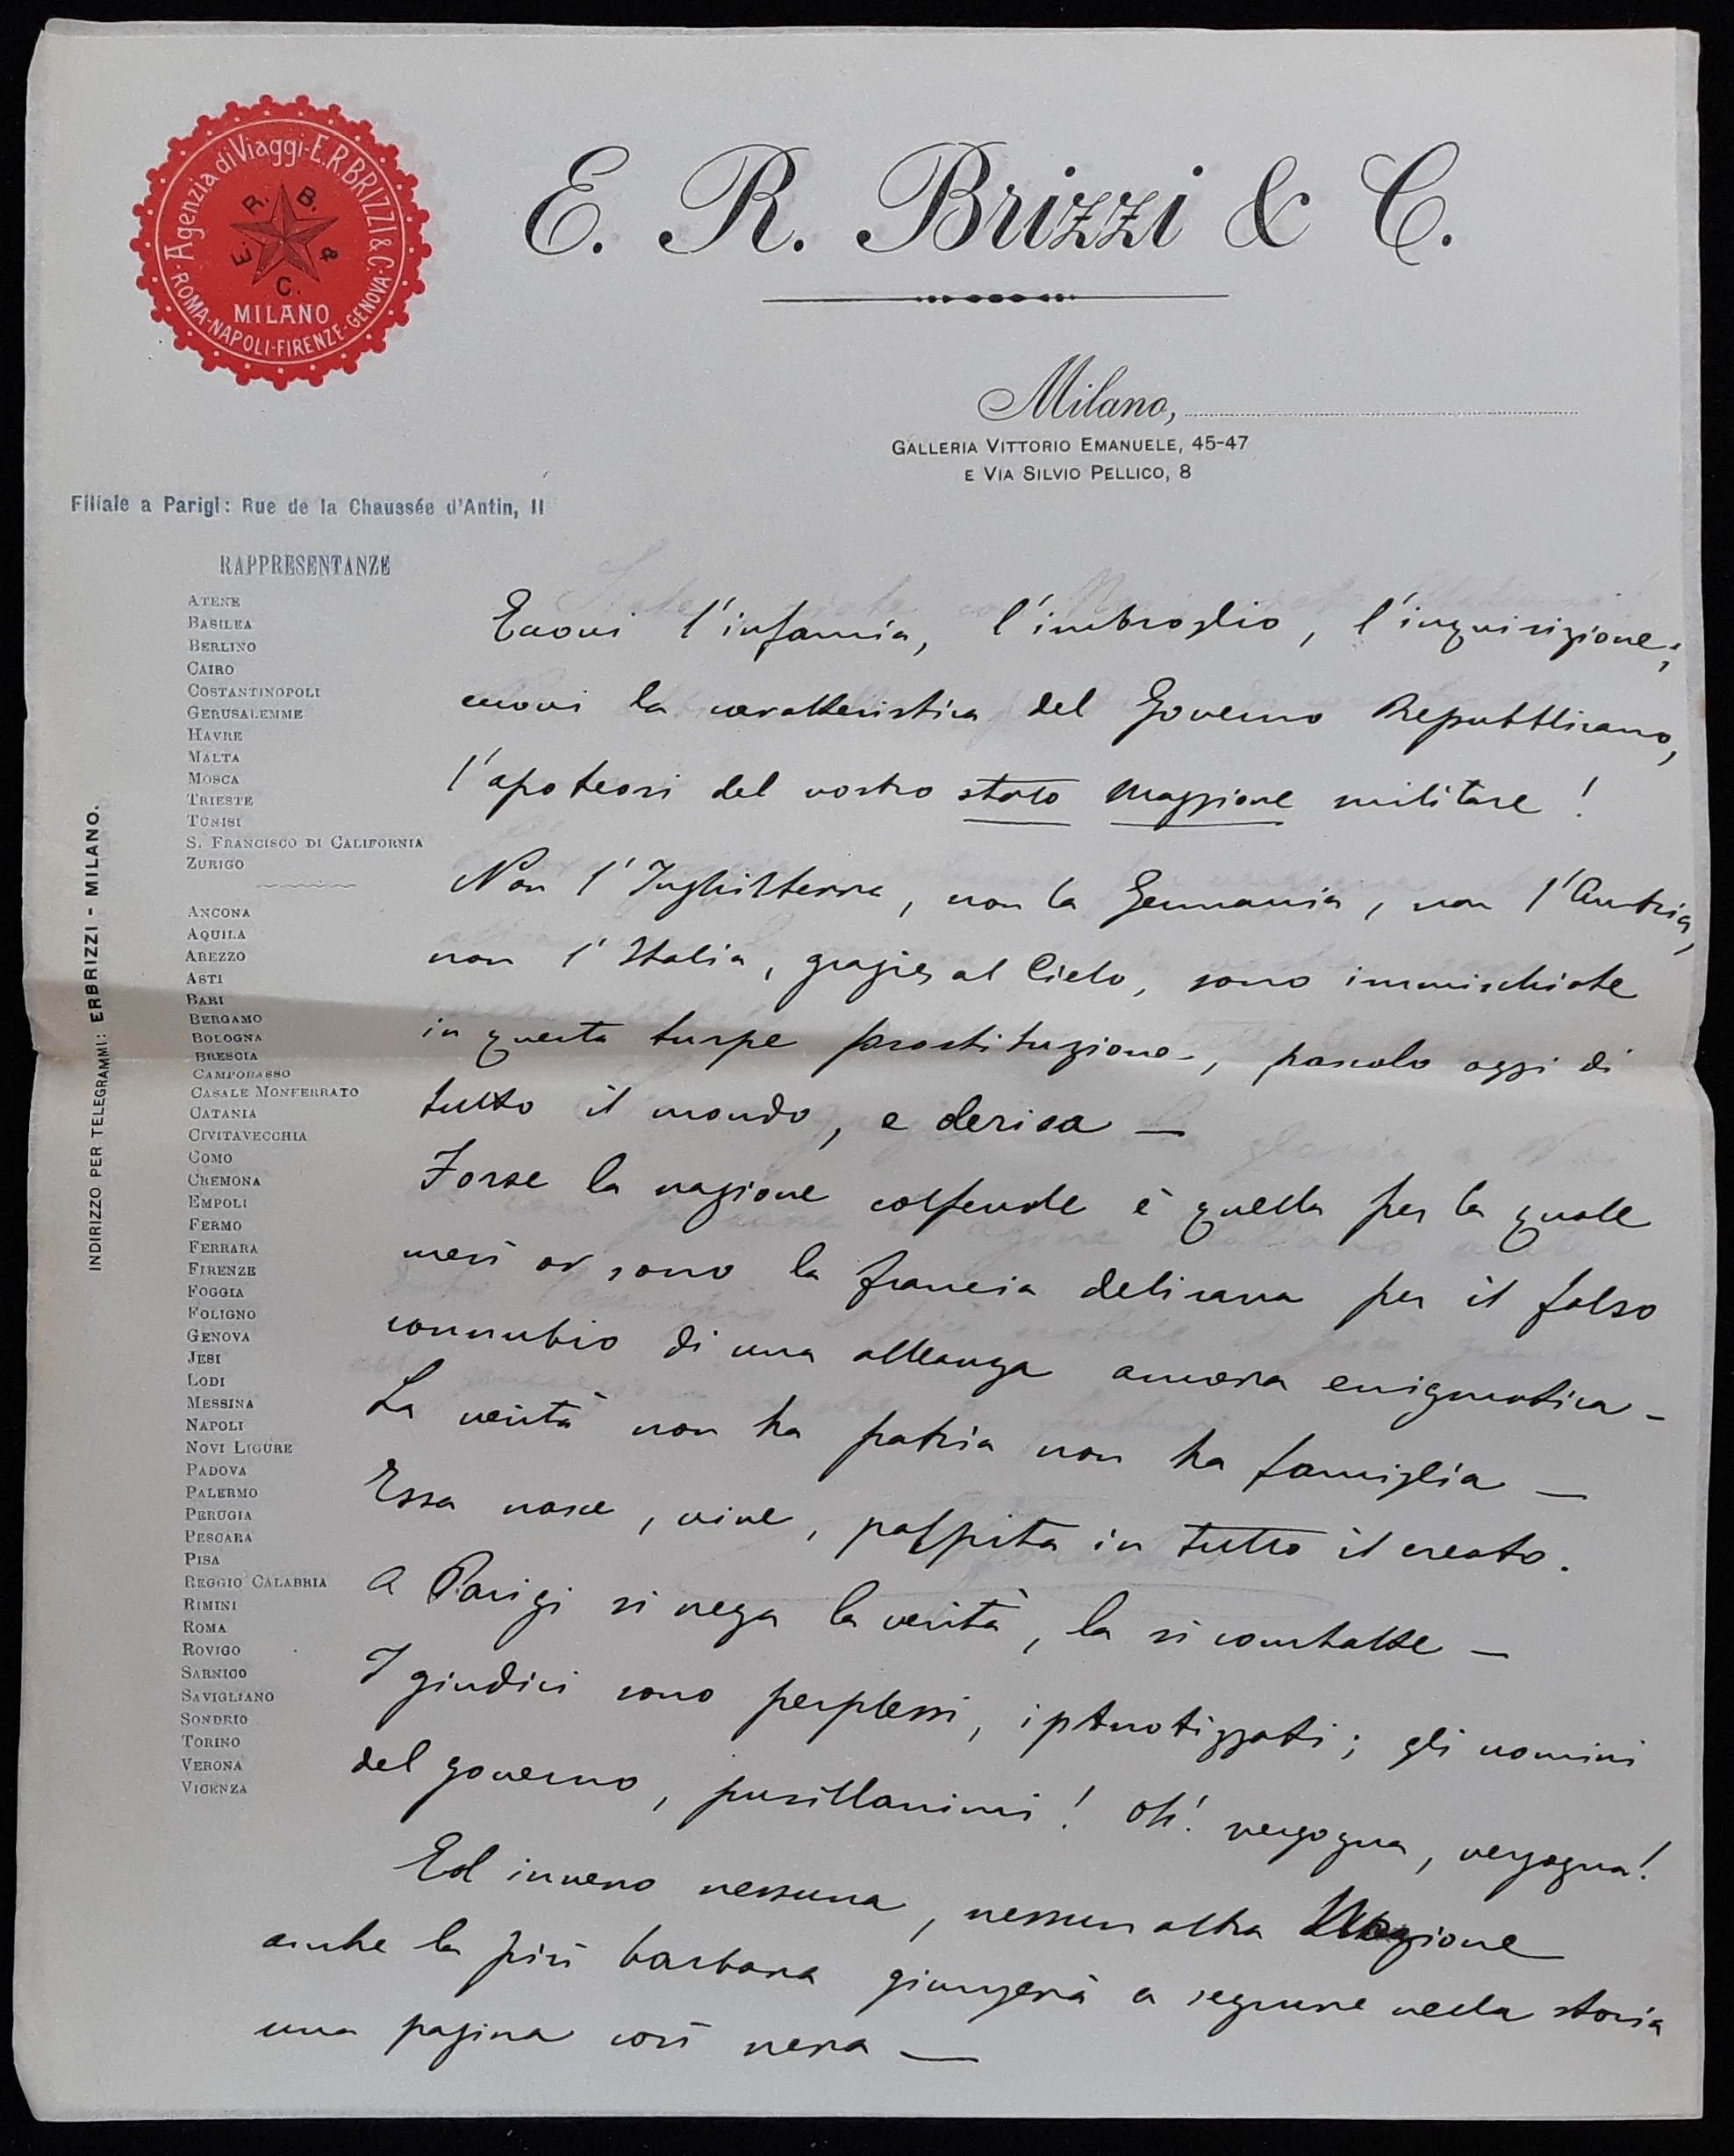 Agenzia di Viaggi - E.R.BRIZZI & C.
E. R. B. & C.
MILANO
ROMA-NAPOLI-FIRENZE-GENOVA
E. R. Brizzi & C.
Milano,
GALLERIA VITTORIO EMANUELE, 45-47
E VIA SILVIO PELLICO, 8
Filiale a Parigi: Rue de la Chaussée d'Antin, 11
RAPPRESENTANZE
ATENE
BASILEA
BERLINO
CAIRO
COSTANTINOPOLI
GERUSALEMME
HAVRE
MALTA
MOSCA
TRIESTE
TUNISI
S. FRANCISCO DI CALIFORNIA
ZURIGO
ANCONA
AQUILA
AREZZO
ASTI
BARI
BERGAMO
BOLOGNA
BRESCIA
CAMPOBASSO
CASALE MONFERRATO
CATANIA
CIVITAVECCHIA
COMO
CREMONA
EMPOLI
FERMO
FERRARA
FIRENZE
FOGGIA
FOLIGNO
GENOVA
JESI
LODI
MESSINA
NAPOLI
NOVI LIGURE
PADOVA
PALERMO
PERUGIA
PESCARA
PISA
REGGIO CALABRIA
RIMINI
ROMA
ROVIGO
SARNICO
SAVIGLIANO
SONDRIO
TORINO
VERONA
VICENZA
INDIRIZZO PER TELEGRAMMI: ERBRIZZI - MILANO.
Eccovi l'infamia, l'imbroglio, l'inquisizione;
eccovi la caratteristica del Governo Repubblicano,
l'apoteosi del vostro stato maggiore militare!
Non l'Inghilterra, non la Germania, non l'Austria,
non l'Italia, grazie al Cielo, sono immischiate
in questa turpe prostituzione, pascolo oggi di
tutto il mondo, e derisa —
Forse la nazione colpevole è quella per la quale
mesi or sono la francia delirava per il falso
connubio di una alleanza ancora enigmatica -
La verità non ha patria non ha famiglia —
Essa nasce, vive, palpita in tutto il creato.
A Parigi si nega la verità, la si combatte —
I giudici sono perplessi, ipnotizzati; gli uomini
del governo, pusillanimi! Oh! vergogna, vergogna!
Ed invero nessuna, nessun altra Nazione
anche la più barbara giungerà a segnare nella storia
una pagina così nera —